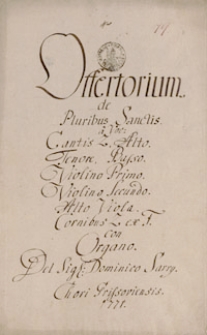 Offertorium
de
Pluribus Sanctis.
à Voc:
Cantis 2. Alto.
Tenore. Basso.
Violino Primo.
Violino Secundo.
Alto Viola.
Cornibus 2. ex F.
con
Organo.
Del Sigl: Dominico Sarry.
Chori